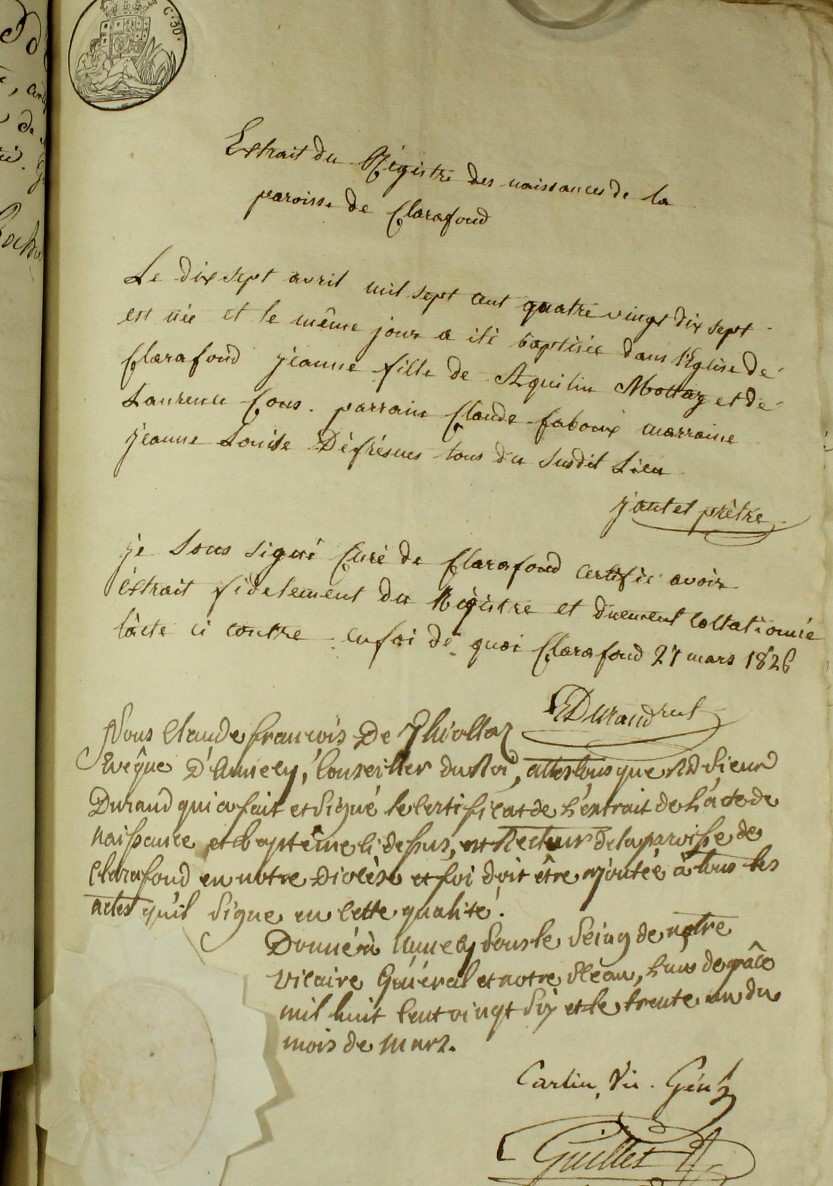 C. 30.
Extrait du Régistre des naissances de la
paroisse de Clarafond
Le dix sept avril mil sept cent quatre vingt dix sept
est née et le même jour a été baptisée dans l'Eglise de
Clarafond jeanne fille de Aquilin Mottaz et de
Laurence Cons. parrain Claude faboux marraine
jeanne Louise Défrésnes tous du susdit Lieu
prêtre
je sous signé Curé de Clarafond certifie avoir
éxtrait fidelement du Régistre et duement Collationnée
l'acte ci contre en foi de quoi Clarafond 27 mars 1826
Durand rect
Nous Claude françois De Thiollaz
Evêque D'Annecy, Conseiller du Roi, attestons que Rd Sieur
Durand qui a fait et signé le Certificat de l'éxtrait de l'acte de
naissance et baptême ci dessus, est Recteur de la paroisse de
Clarafond en notre Diocèse et foi doit être ajoutée à tous les
actes qu'il signe en cette qualité.
Donné à Annecy sous le Seing de notre
Vicaire Général et notre Sléau, l'an de grâce
mil huit Cent vingt Six et le trente un du
mois de Mars.
Vic. Génl
Guillet